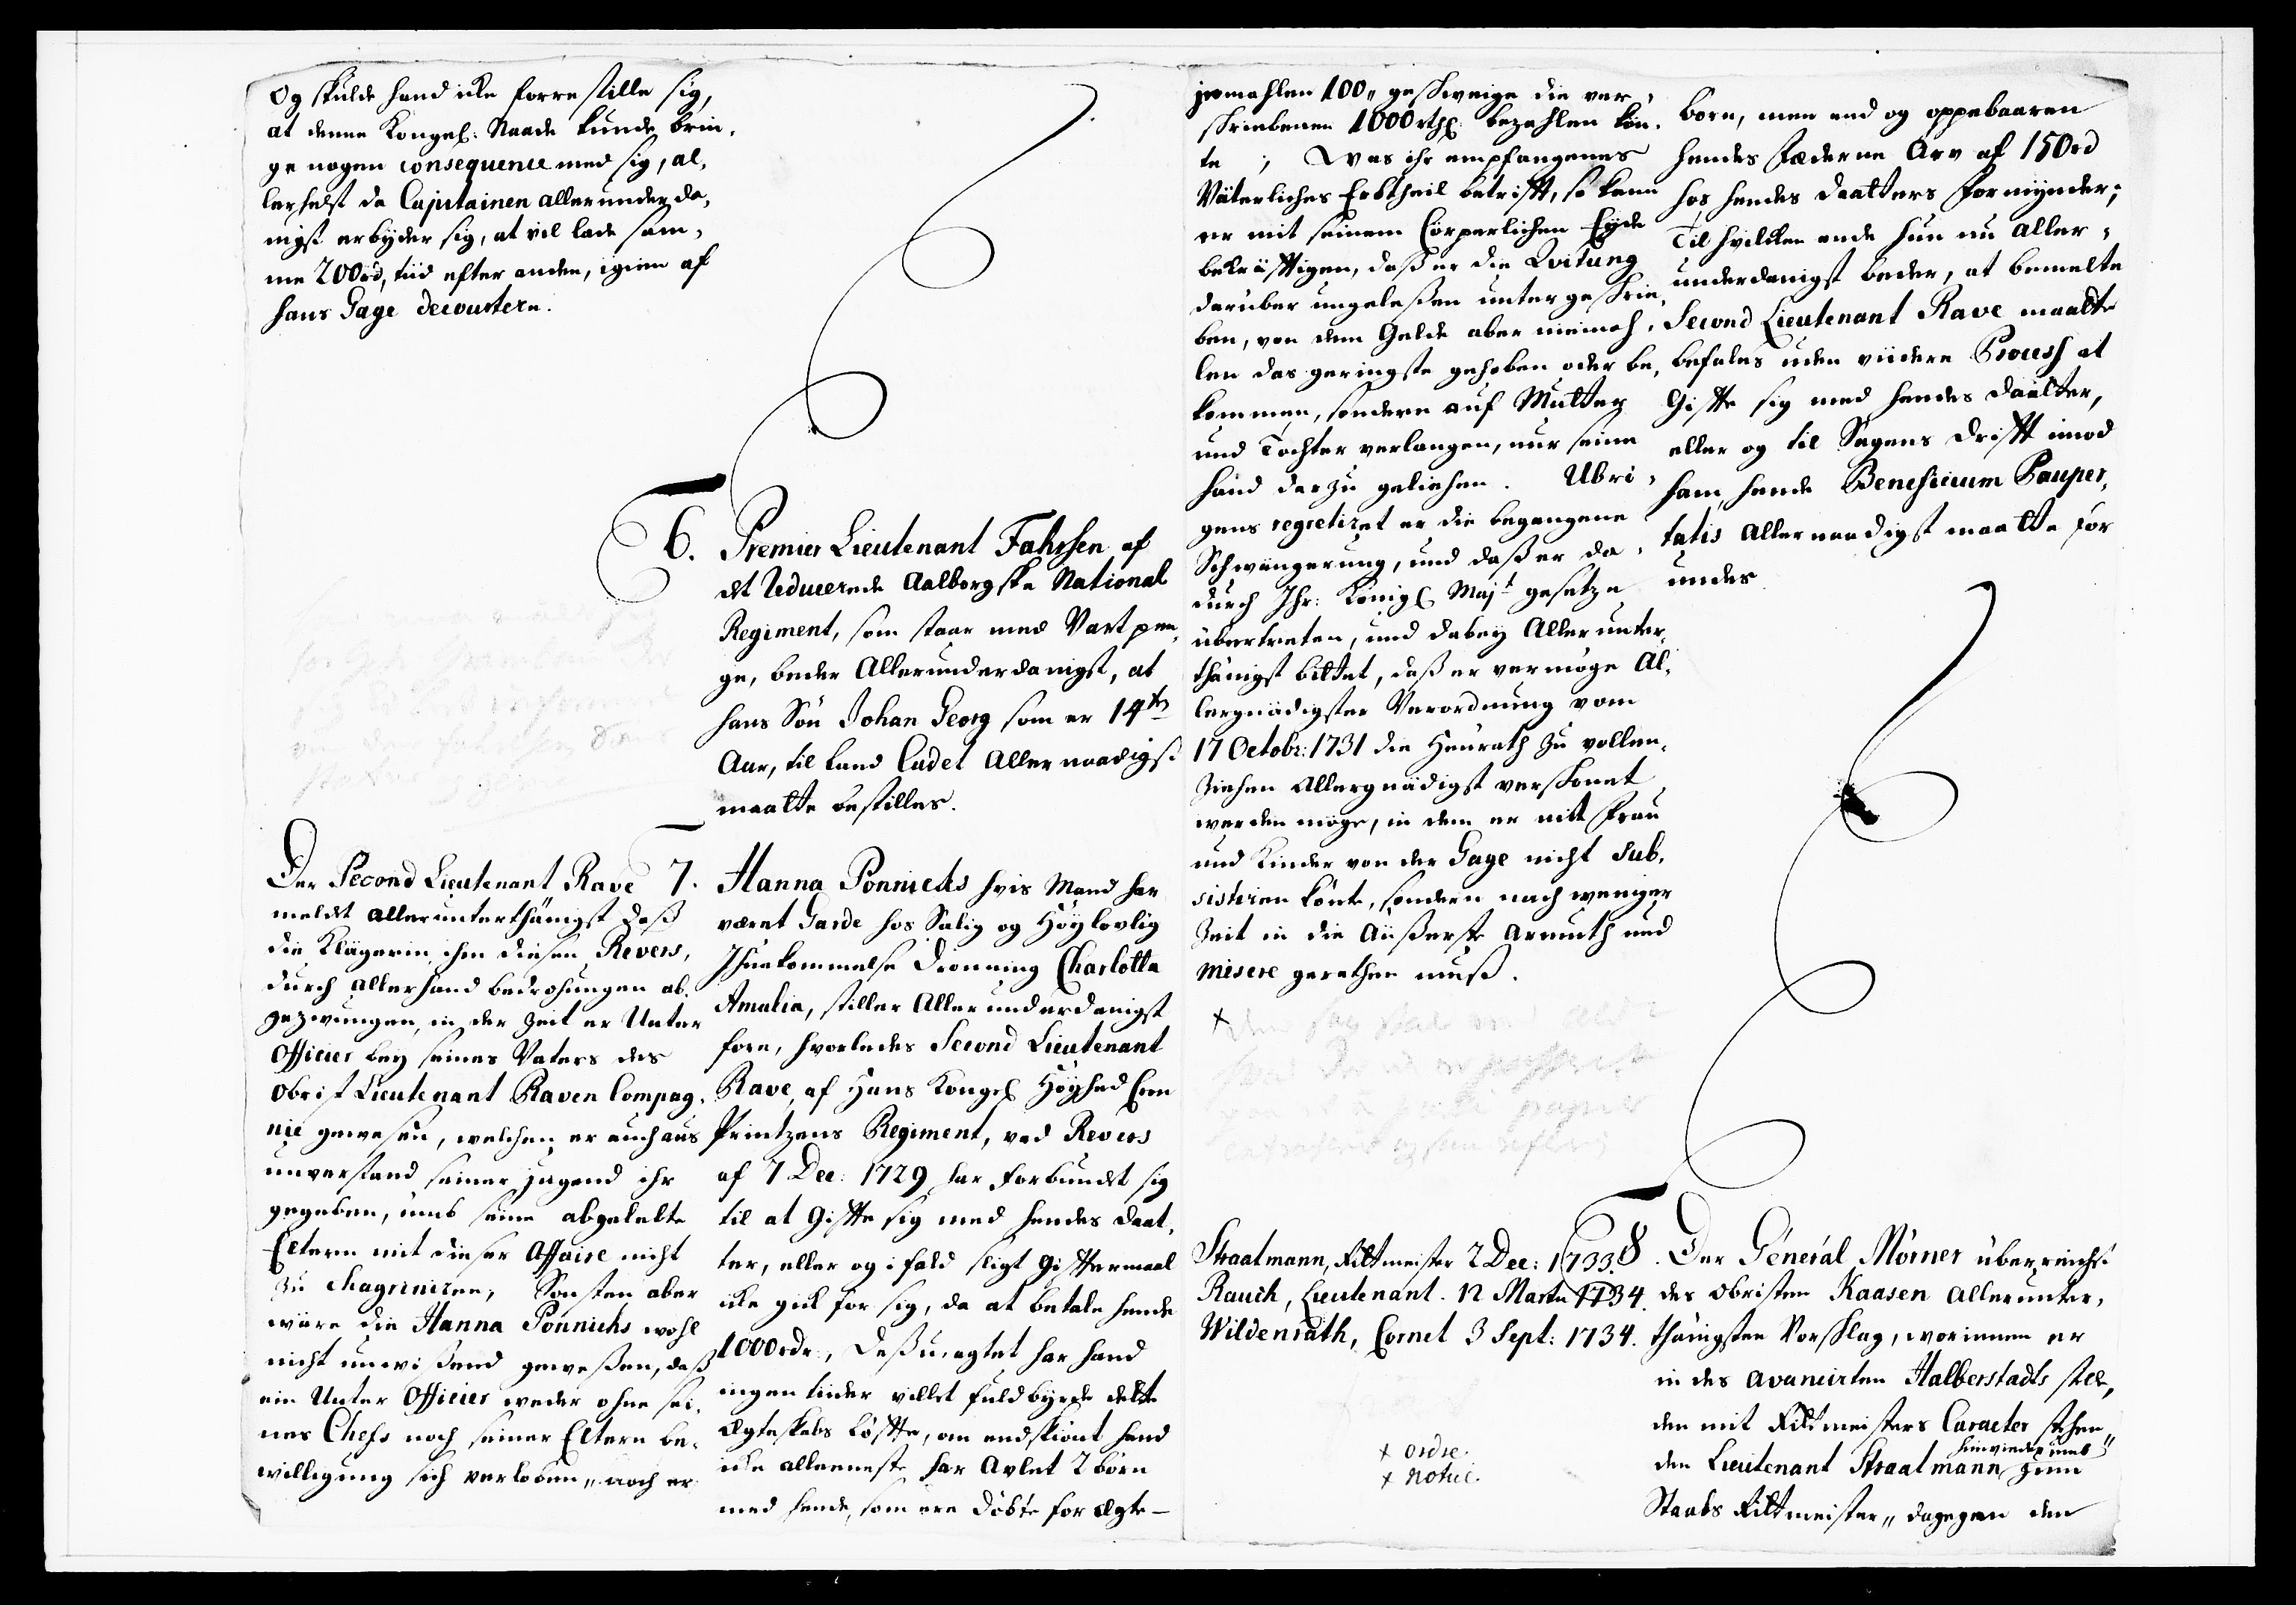 Og skulde hand icke forrestille sig,
at denne Kongel: Naade kunde brin-
ge nogen consequence med sig, al-
lerhelst da Capitainen allerunderda-
nigst erbyder sig, at vil lade sam-
me 200 rd, tiid efter anden, igien af
hans Gage decourtere.
6. Premier Lieutenant Fahrsen af
det reducerede Aalborgske National
Regiment, som staar med Vartpen-
ge, beder Allerunderdanigst, at
hans Sön Johan Georg som er 14ten
Aar, til Land Cadet Allernaadigst
maatte bestilles.
Der Second Lieutenant Rave
meldet allerunterthänigst daß
die Klägerin ihm diesen Revers,
durch allerhand bedrohungen ab-
gezwungen, in der Zeit er Unter
Officier bey seines Vaters des
Obrist Lieutenant Raven Compag-
nie gewesen, welchen er auch aus
unverstand seiner jugend ihr
gegeben, umb seine abgelebte
Eltern mit dieser Affaire nicht
zu chagriniren, Sonsten aber
wäre die Hanna Pönnichs wohl
nicht unwißend geweßen, daß
ein Unter Officier weder ohne sei-
nes Chefs noch seiner Eltern be-
willigung sich verloben, noch er
7. Hanna Ponnichs hvis Mand har
været Garde hos Salig og Höylovlig
Ihukommelse Dronning Charlotta
Amalia, stiller Allerunderdanigst
fore, hvorledes Second Lieutenant
Rave, af Hans Kongel Höyhed Cron
Printzens Regiment, ved Revers
af 7 Dec: 1729 har forbundet sig
til at Gifte sig med hendes Daat-
ter, eller og i fald sligt Giftermaal
icke gick for sig, da at betale hende
1000 rdr., Deßuagtet har hand
ingenlunder villet fuldbyrde dette
Ægteskabs Löffte, om endskiönt hand
icke alleeneste har Avlet 2 börn
med hende, som ere Döbte for Ægte-
jemahlen 100, geschweige die ver-
schriebenen 1000 rthl: bezahlen kön-
te; Was ihr empfangenes
Väterliches Erbtheil betrifft, so kann
er mit seinem Cörperlichen Eyde
bekräfftigen, daß er die Qvitung
darüber ungeleßen unterge schrie-
ben, von dem Gelde aber niemah-
len das geringste gehoben oder be-
kommen, sondern auf Mutter
und Tochter verlangen, nur seine
Hand darzu geliehen. Ubri-
gens regretiret er die begangene
Schwängerung, und daß er da-
durch Ihr: Königl Majt gesetze
übertreten, und dabey Allerunter-
thänigst bittet, daß er vermöge Al-
lergnädigster Verordnung vom
17 Octobr: 1731 die Heurath zu vollen-
ziehen Allergnädigst verschonet
werden möge, in dem er mit Frau
und Kinder von der Gage nicht sub-
sistiren könte, sondern nach weniger
Zeit in die Äüßerste Armuth und
misere gerathen muß.
born, men end og oppebaaren
hendes Fæderne Arv af 150 rd
hos hendes Daatters Formynder;
Til hvilcken ende hun nu Aller-
underdanigst beder, at bemelte
Second Lieutenant Rave maatte
befales uden viidere Process at
Gifte sig med hendes Daatter,
eller og til Sagens Drifft imod
ham, hende Beneficium Pauper-
tatis Allernaadigst maatte for
undes.
Straatmann, Rittmeister 2 Dec: 1733.
Rauch, Lieutenant. 12 Martii 1734.
Wildenrath, Cornet 3 Sept: 1734.
+ ordre.
+ Notice.
8. Der Géneral Mörner überreicht
des Obristen Kaasen Allerunter-
thänigsten Vorschlag, worinnen er
in des avancirten Halberstadts stelle,
den mit Rittmeisters Caracter stehen-
den Lieutenant Straatmann hinwiederumb zum
Staabs Rittmeister, dagegen den